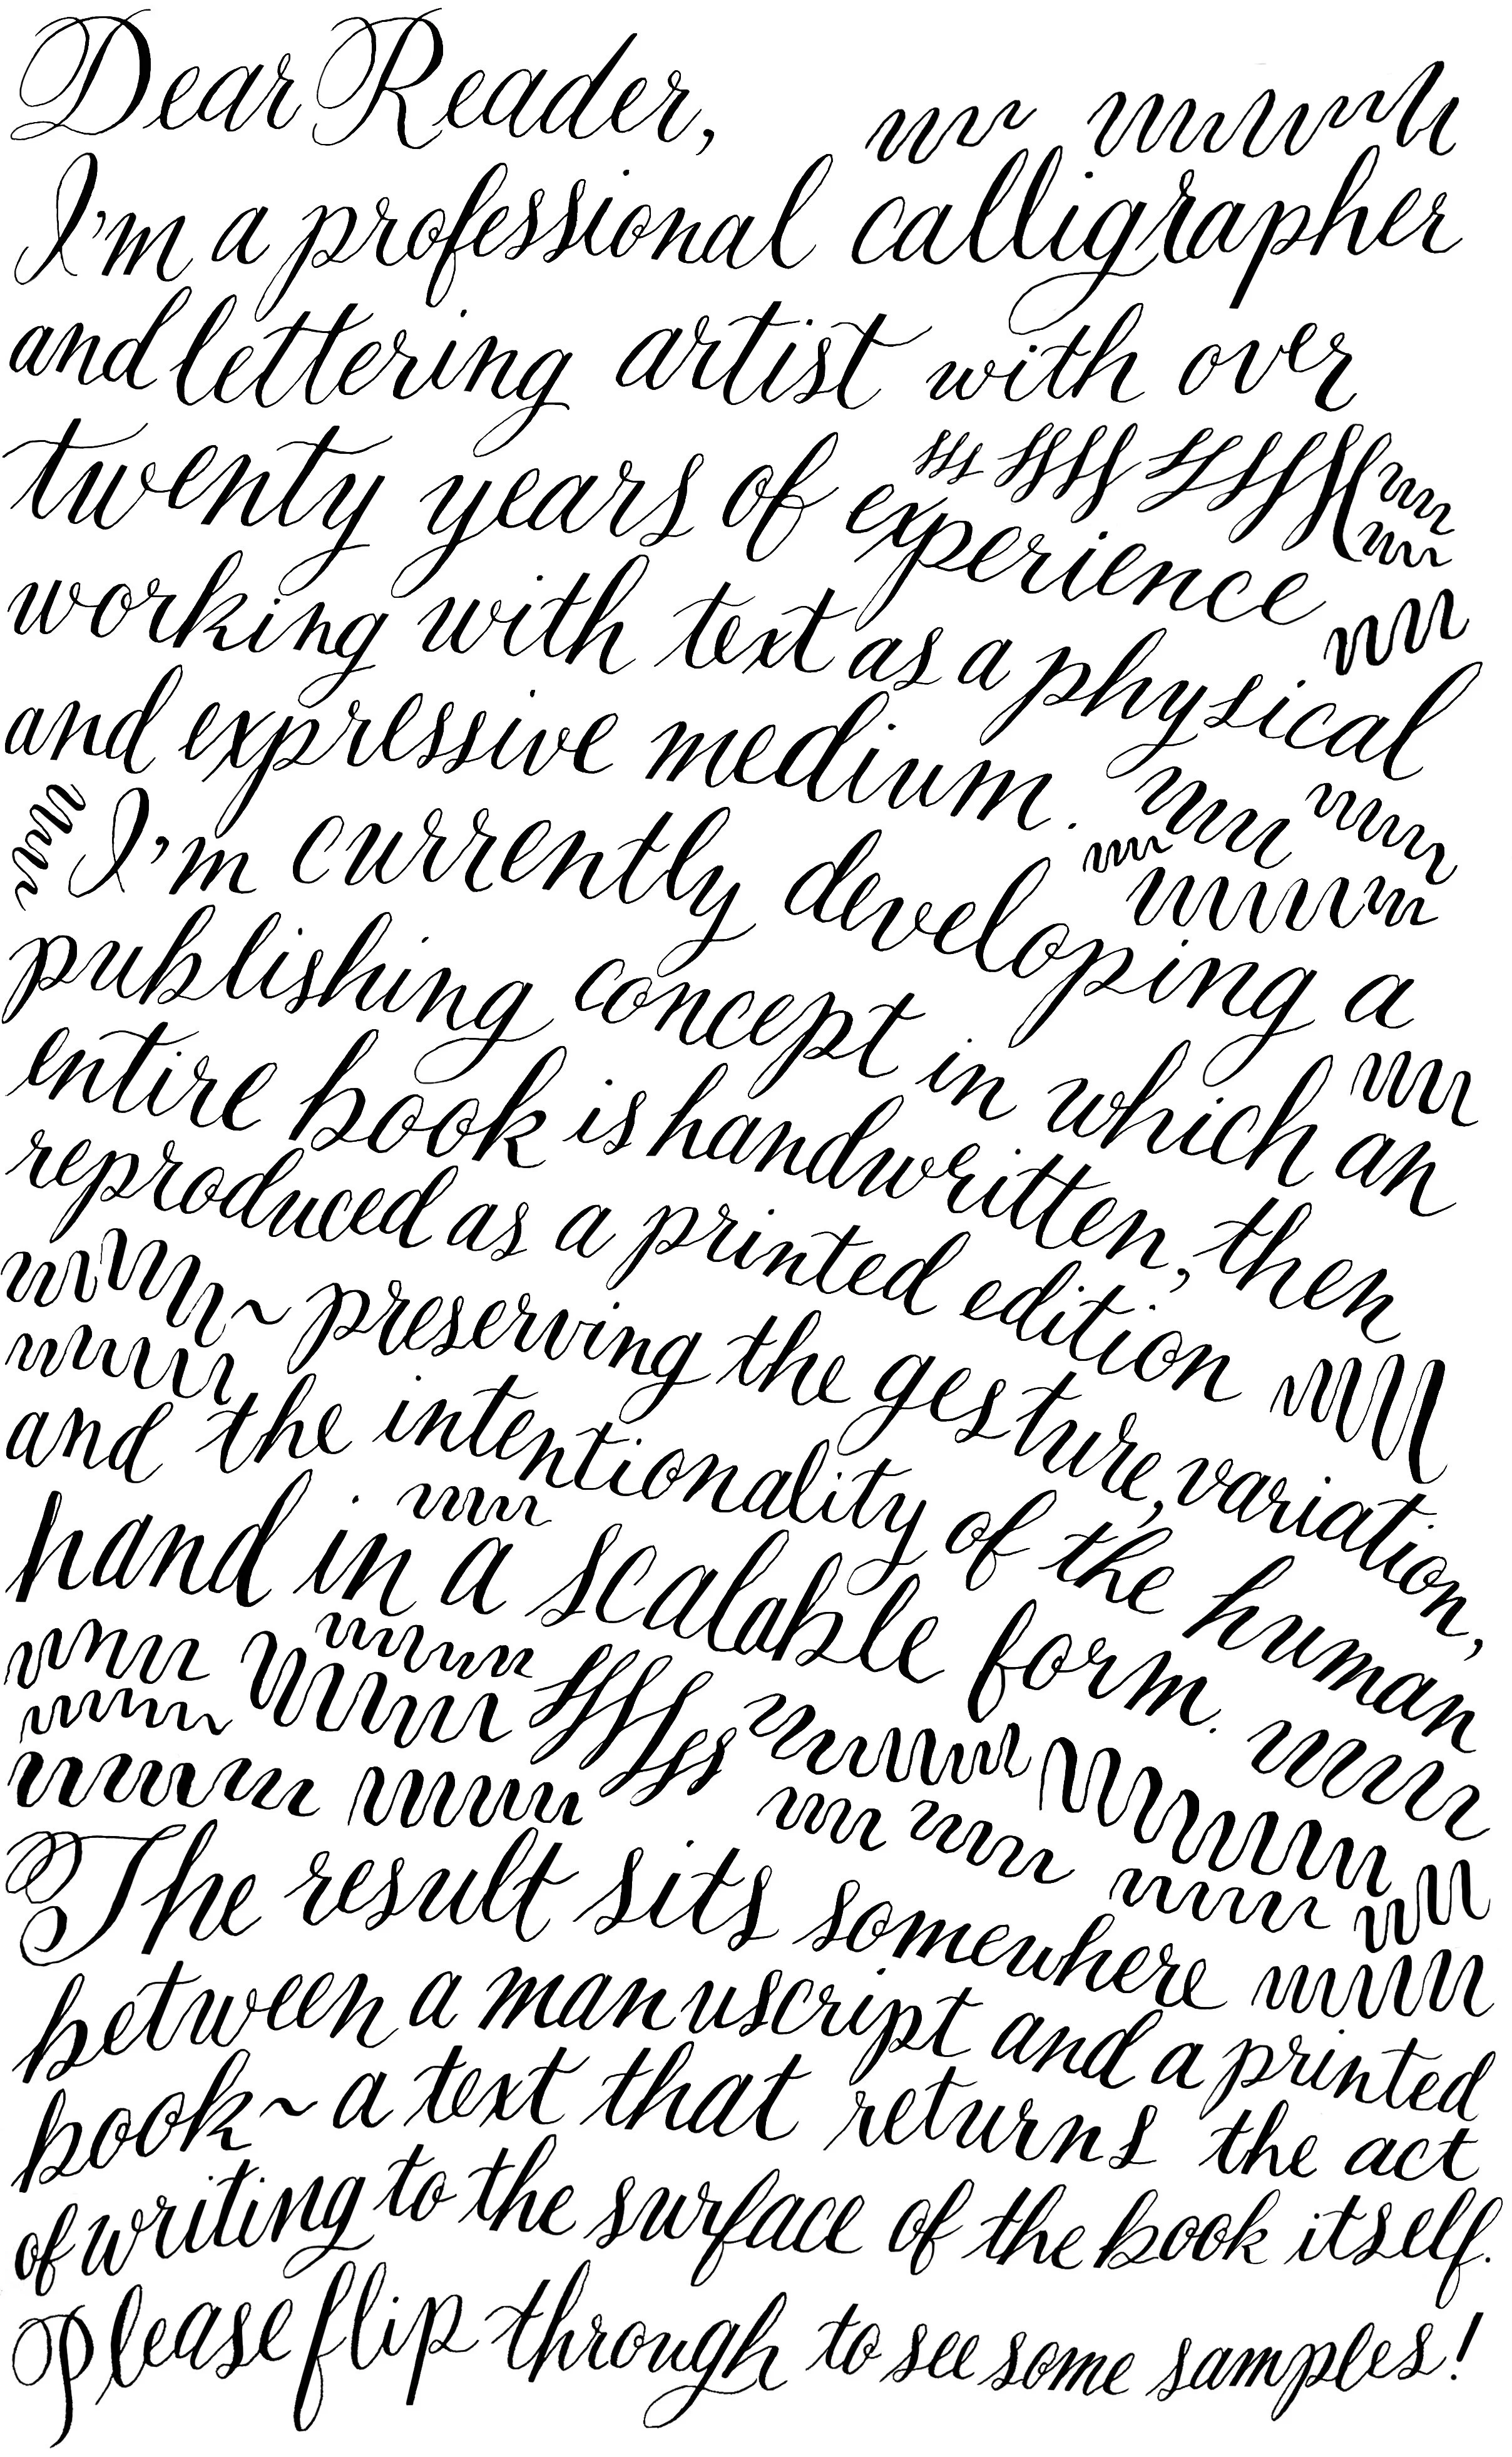 Dear Reader,
I'm a professional calligrapher
and lettering artist with over
twenty years of experience
working with text as a physical
and expressive medium.
I'm currently developing a
publishing concept in which an
entire book is handwritten, then
reproduced as a printed edition
~ preserving the gesture, variation,
and the intentionality of the human
hand in a scalable form.
The result sits somewhere
between a manuscript and a printed
book ~ a text that returns the act
of writing to the surface of the book itself.
Please flip through to see some samples!